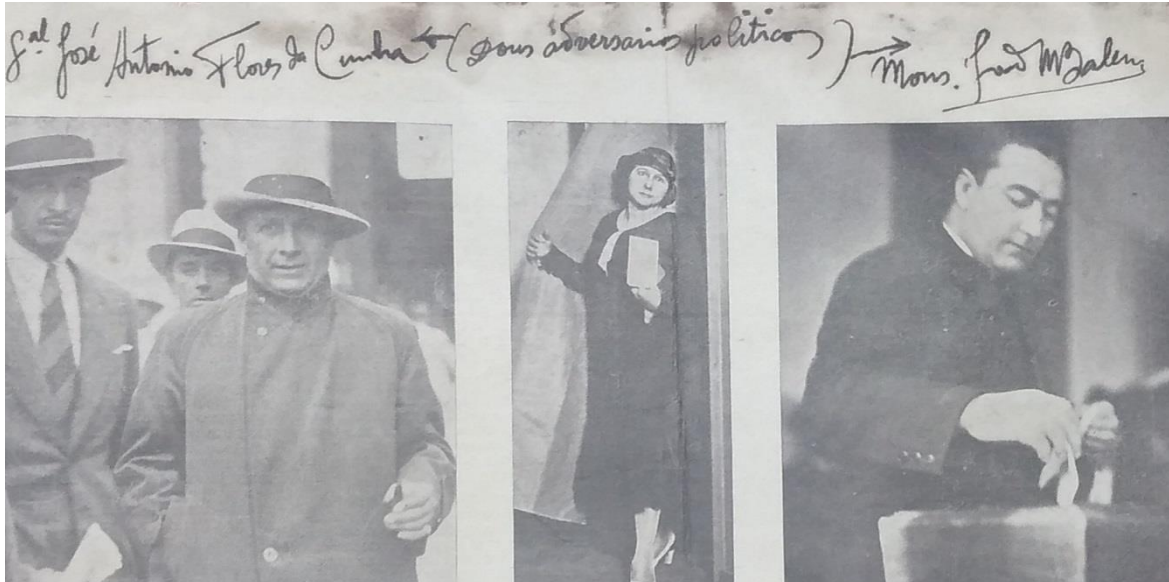 Gal José Antonio Flores da Cunha ← (Dous adversarios politicos) → Mons.